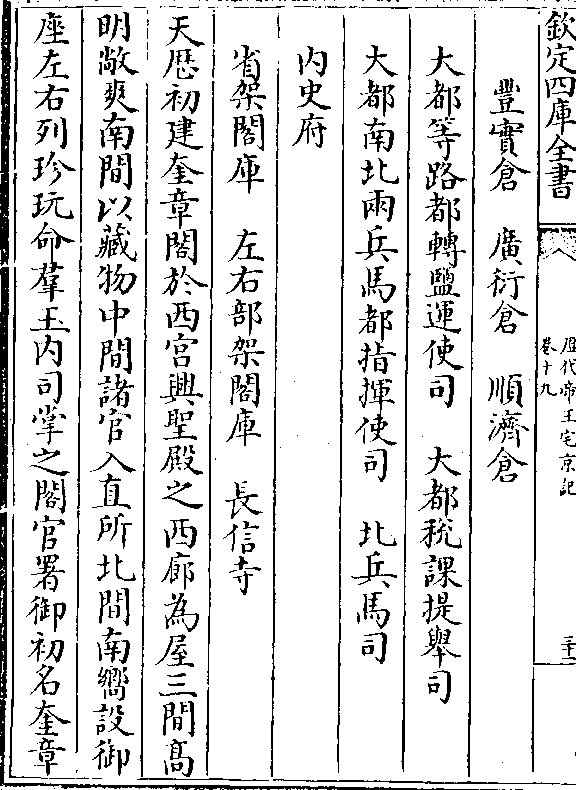 欽定四庫全書
歷代帝王宅京記
卷十九
三十二
豐實倉　廣衍倉　順濟倉
大都等路都轉鹽運使司　大都稅課提舉司
大都南北兩兵馬都指揮使司　北兵馬司
内史府
省架閣庫　左右部架閣庫　長信寺
天厯初建奎章閣於西宫興聖殿之西廊為屋三間髙
明敞爽南間以藏物中間諸官入直所北間南嚮設御
座左右列珍玩命羣玉内司掌之閣官署御初名奎章